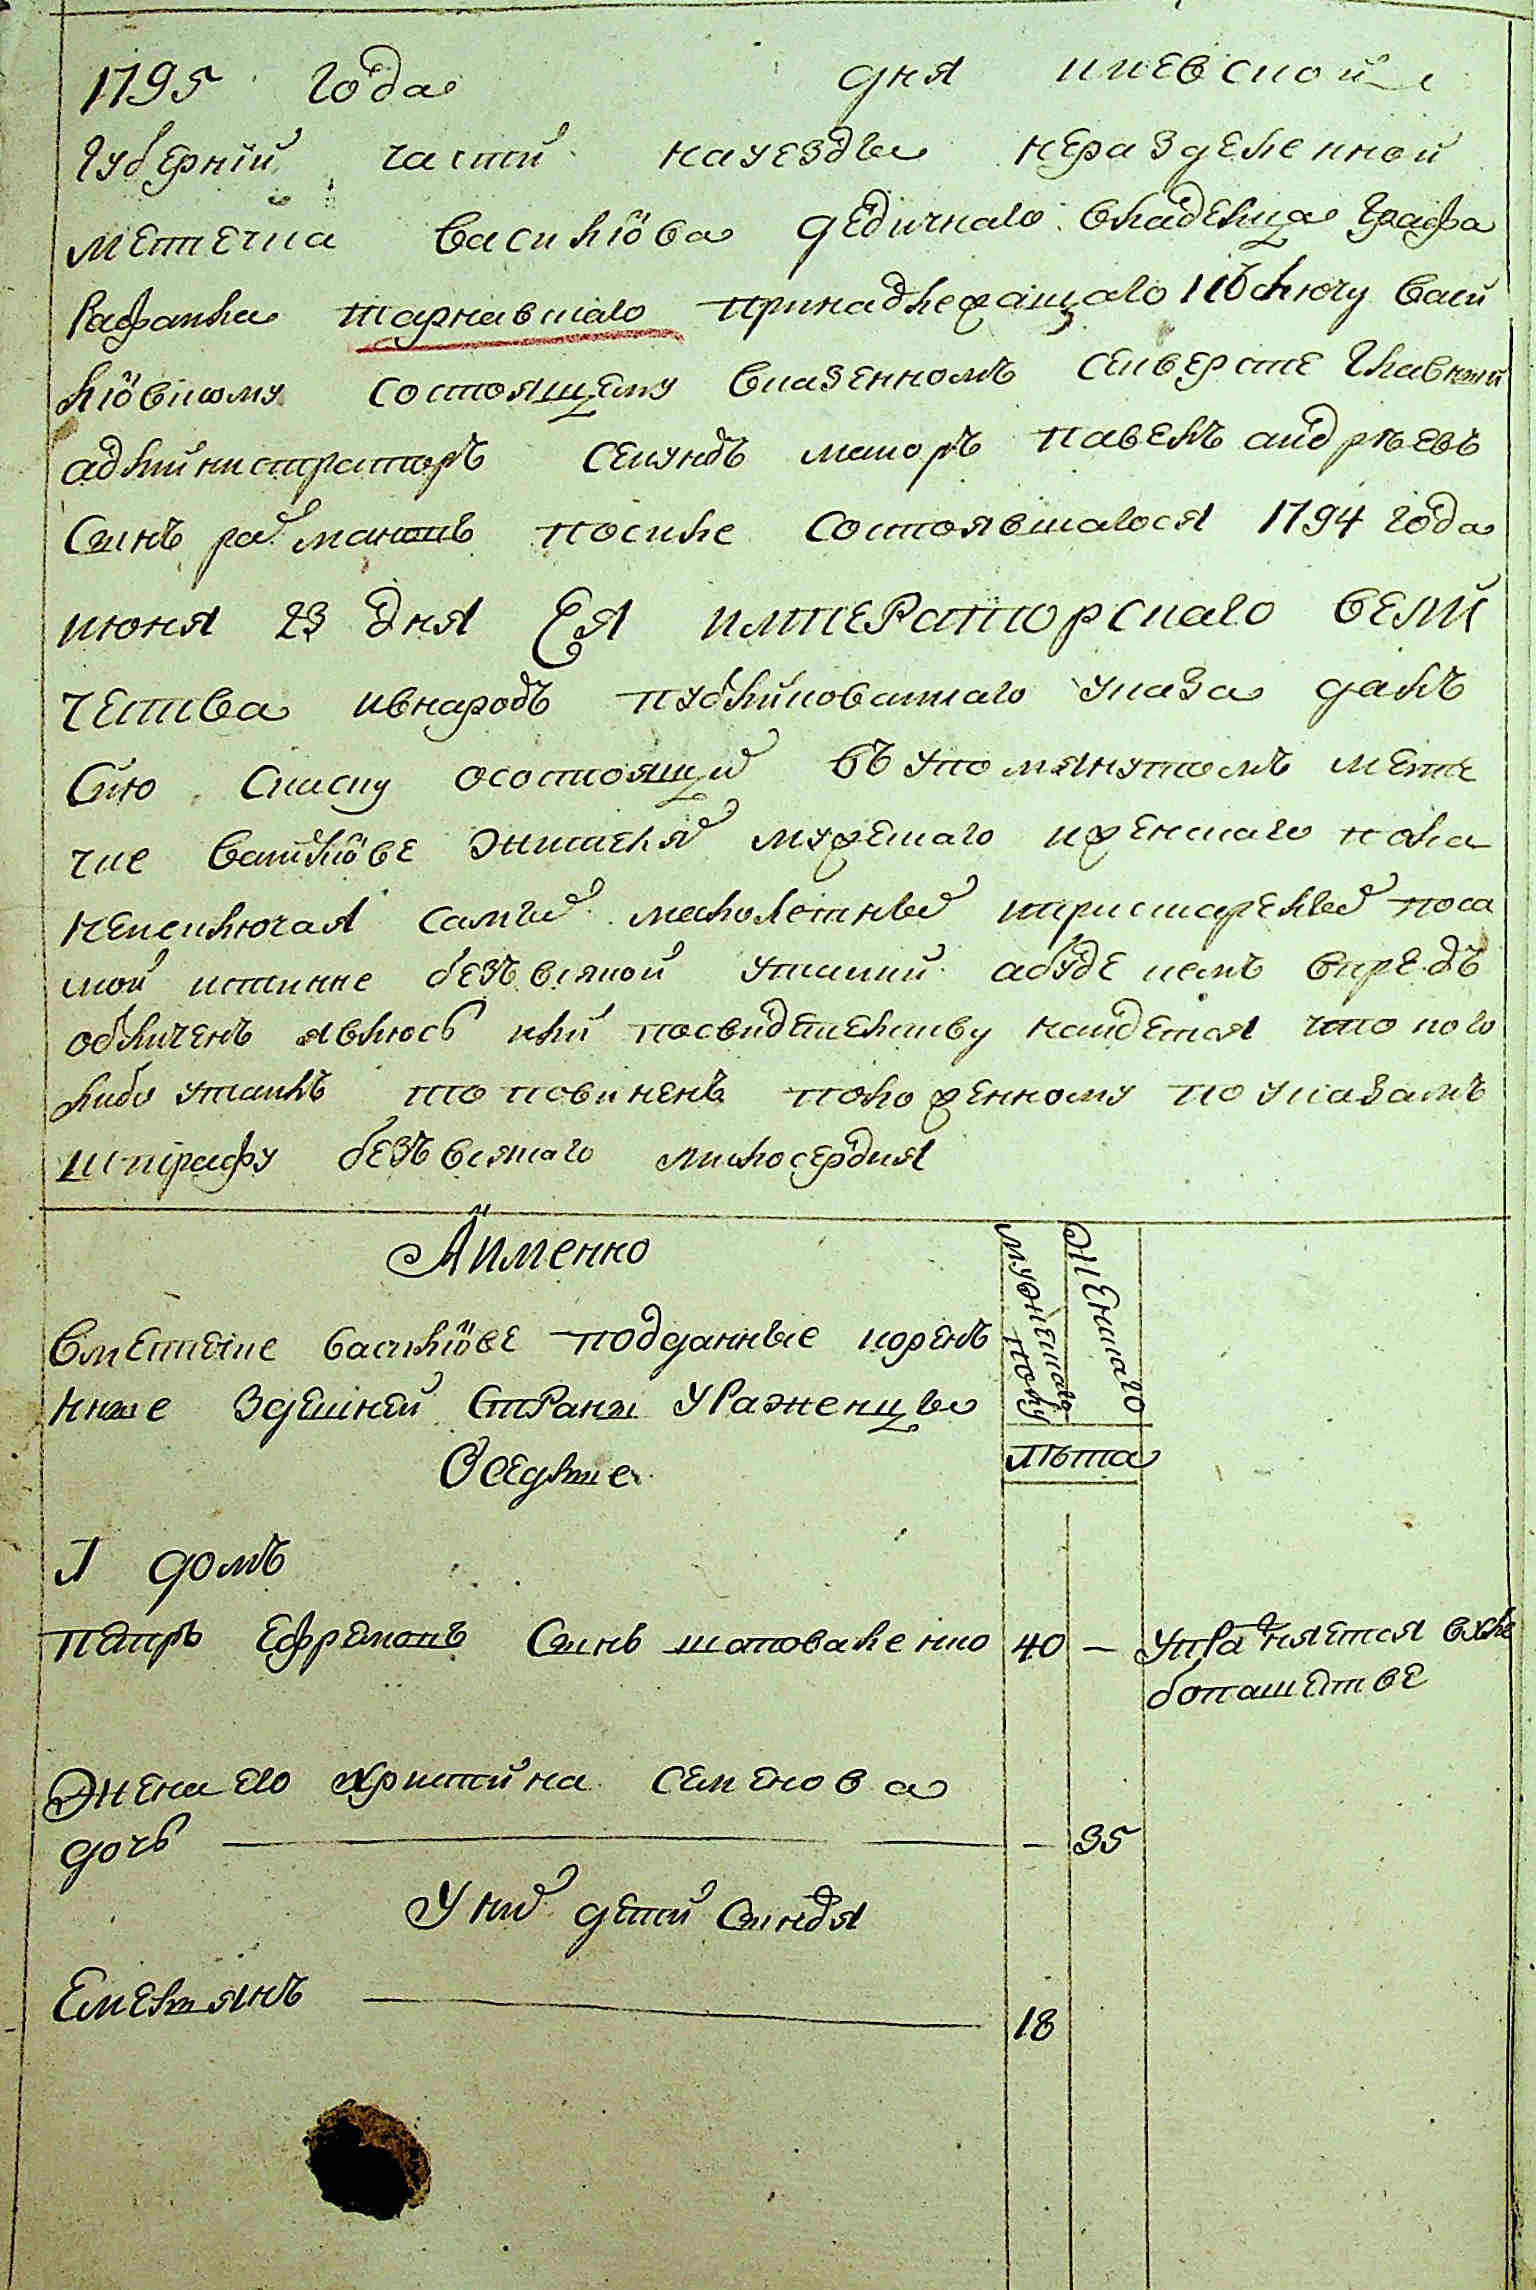 1795 года дня киевской
губернiй части науездъ неразделенной
местечка василкова дедичнаго владелца графа
Рафаила тарнавскаго принадлежащаго к ключу васи
лковскому состоящему вказенномъ сенверсте главний
администраторъ секундъ маиоръ павелъ андреевъ
синъ романовъ после состоявшагося 1794 года
июня 23 дня Ея императорскаго вели
чества ивнародъ публикованнаго указа далъ
сию скаску осостоящих въ упомянутомъ места
чке василкове жителях мужескаго иженскаго пола
неисключая самых малолетных ипристарелых поса
мой истинне безъ всякой утайки абуде кемъ впредъ
обличенъ явлюсь или посвидетелству найдется что кого
либо утаилъ то повиненъ положенному поуказамъ
штрафу безъ всякаго милосердия
Аименно
мужескаго полу
женскаго
вместечке василкове подданные корен
ние здешней страни уроженци
Оседлие
лѣта
1 домъ
петръ ефремовъ синъ шаповаленко 40 — упражняется вхле
бопашестве
жена его христина семенова
дочь — 35
У них дети синовя
Емелянъ 18